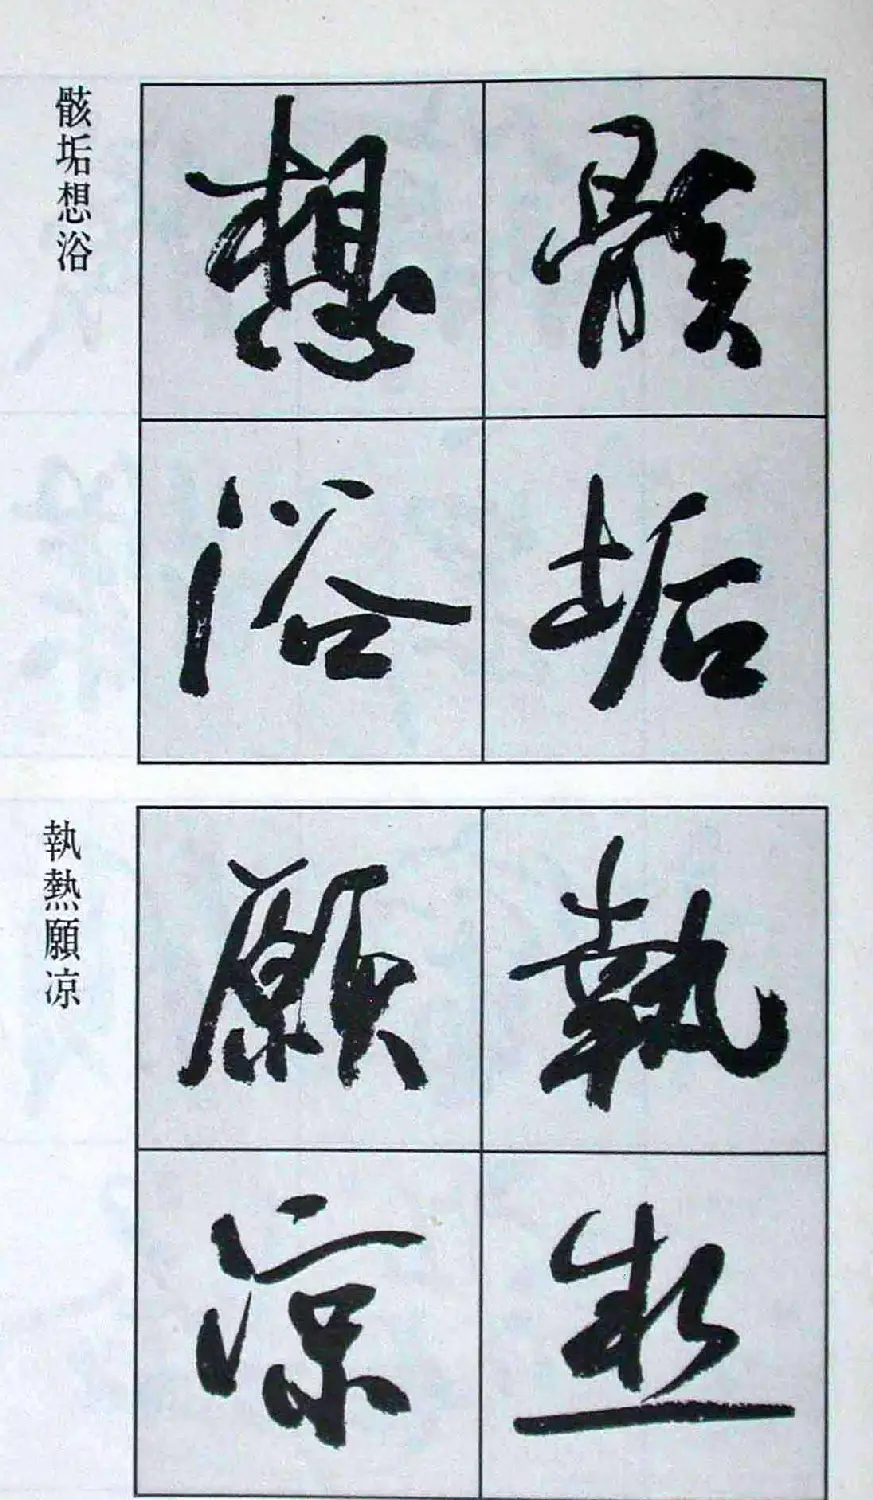 骸垢
想浴
骸垢想浴
執熱
願凉
執熱願凉